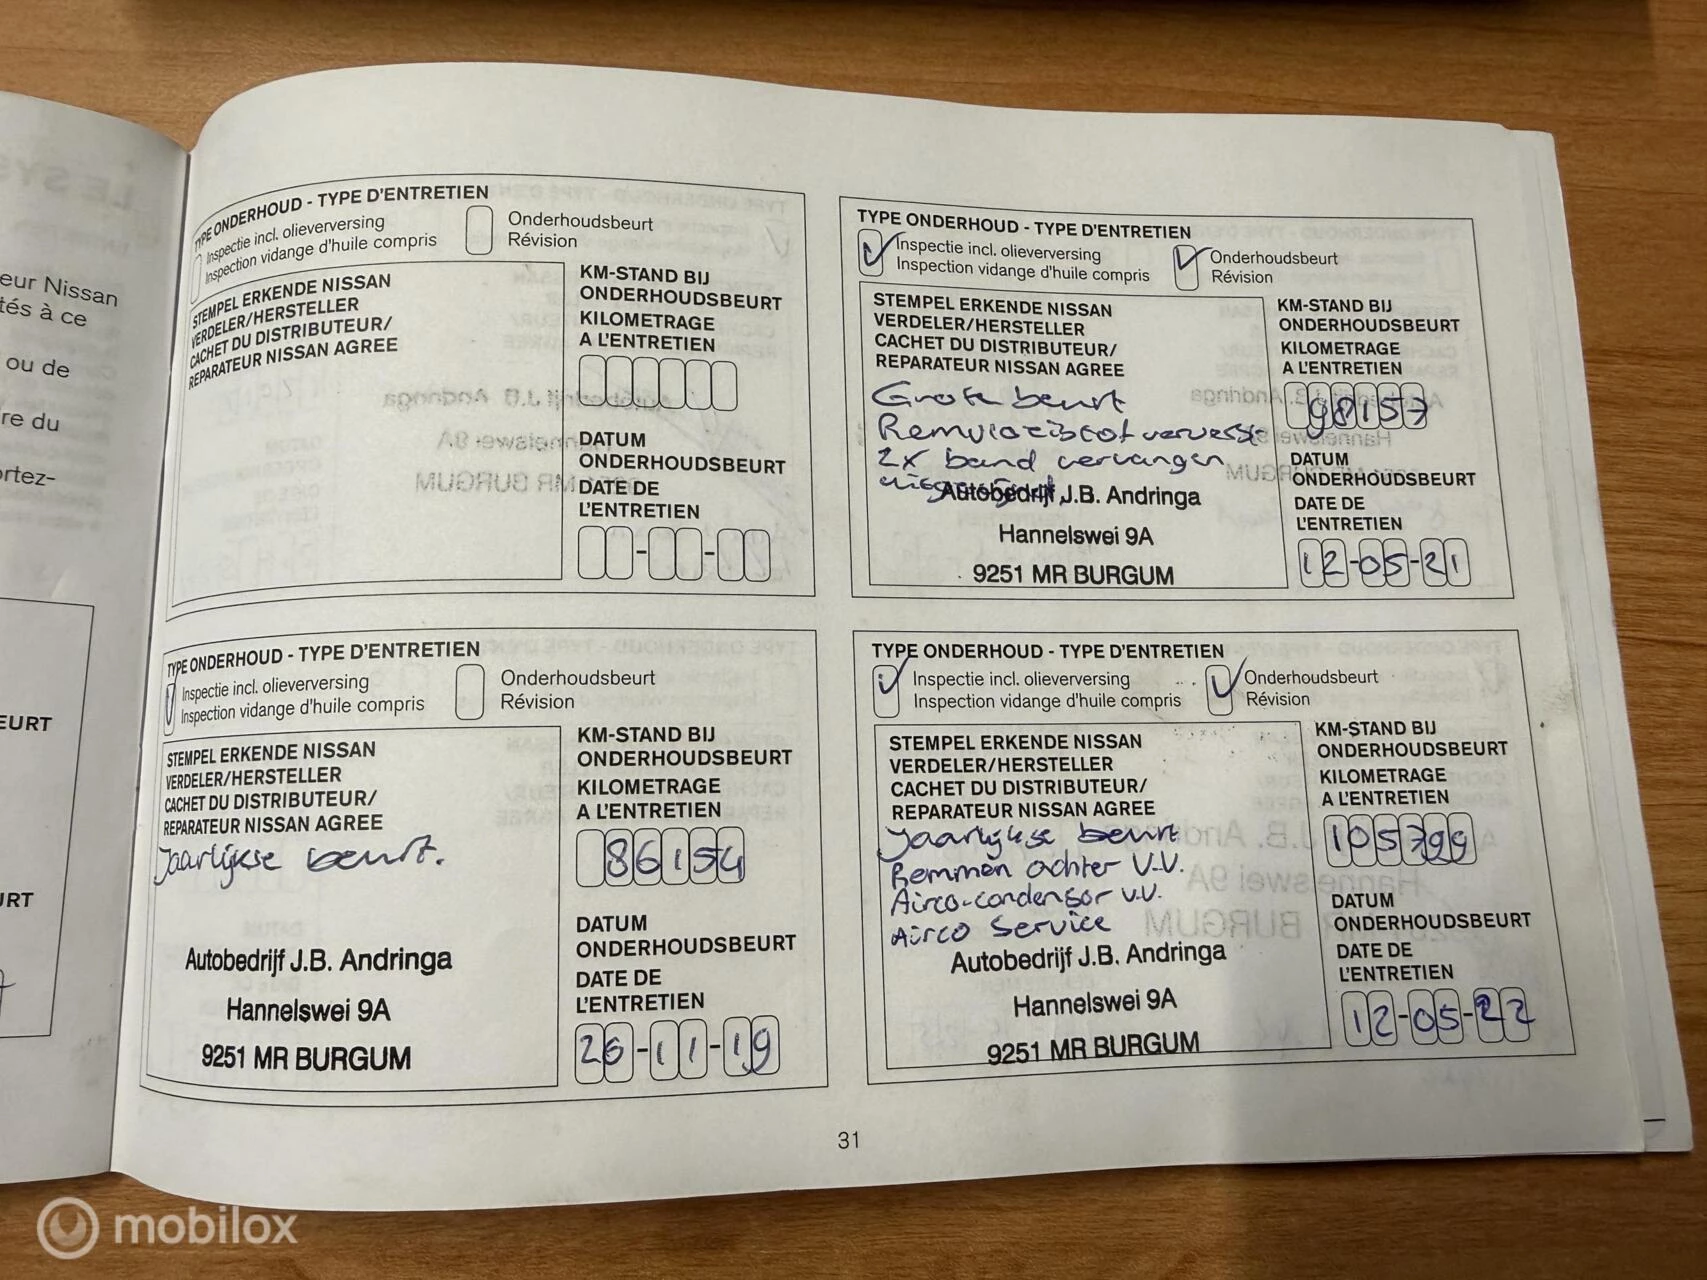 LE SYS
eur Nissan
tés à ce
ou de
re du
ortez-
EURT
URT
TYPE ONDERHOUD - TYPE D'ENTRETIEN
Inspectie incl. olieverversing
Inspection vidange d'huile compris
Onderhoudsbeurt
Révision
STEMPEL ERKENDE NISSAN
VERDELER/HERSTELLER
CACHET DU DISTRIBUTEUR/
REPARATEUR NISSAN AGREE
KM-STAND BIJ
ONDERHOUDSBEURT
KILOMETRAGE
A L'ENTRETIEN
DATUM
ONDERHOUDSBEURT
DATE DE
L'ENTRETIEN
TYPE ONDERHOUD - TYPE D'ENTRETIEN
Inspectie incl. olieverversing
Inspection vidange d'huile compris
Onderhoudsbeurt
Révision
STEMPEL ERKENDE NISSAN
VERDELER/HERSTELLER
CACHET DU DISTRIBUTEUR/
REPARATEUR NISSAN AGREE
Grote beurt
Remvloeistof ververst
2x band vervangen
Autobedrijf J.B. Andringa
Hannelswei 9A
9251 MR BURGUM
KM-STAND BIJ
ONDERHOUDSBEURT
KILOMETRAGE
A L'ENTRETIEN
98157
DATUM
ONDERHOUDSBEURT
DATE DE
L'ENTRETIEN
12-05-21
TYPE ONDERHOUD - TYPE D'ENTRETIEN
Inspectie incl. olieverversing
Inspection vidange d'huile compris
Onderhoudsbeurt
Révision
STEMPEL ERKENDE NISSAN
VERDELER/HERSTELLER
CACHET DU DISTRIBUTEUR/
REPARATEUR NISSAN AGREE
Jaarlijkse beurt.
Autobedrijf J.B. Andringa
Hannelswei 9A
9251 MR BURGUM
KM-STAND BIJ
ONDERHOUDSBEURT
KILOMETRAGE
A L'ENTRETIEN
86154
DATUM
ONDERHOUDSBEURT
DATE DE
L'ENTRETIEN
26-11-19
TYPE ONDERHOUD - TYPE D'ENTRETIEN
Inspectie incl. olieverversing
Inspection vidange d'huile compris
Onderhoudsbeurt
Révision
STEMPEL ERKENDE NISSAN
VERDELER/HERSTELLER
CACHET DU DISTRIBUTEUR/
REPARATEUR NISSAN AGREE
Jaarlijkse beurt
Remmen achter V.V.
Airco-condensor v.v.
Airco Service
Autobedrijf J.B. Andringa
Hannelswei 9A
9251 MR BURGUM
KM-STAND BIJ
ONDERHOUDSBEURT
KILOMETRAGE
A L'ENTRETIEN
105799
DATUM
ONDERHOUDSBEURT
DATE DE
L'ENTRETIEN
12-05-22
31
mobilox